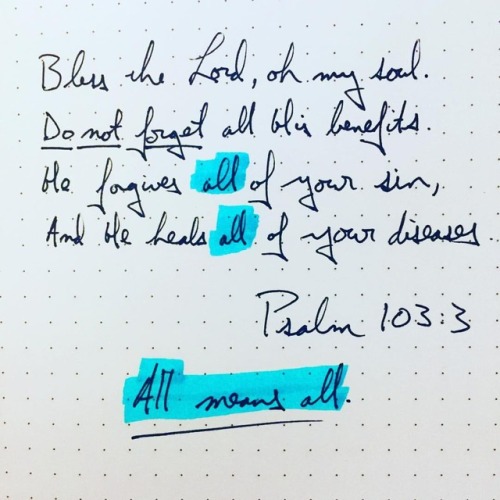 Bless the Lord, oh my soul.
Do not forget all His benefits.
He forgives all of your sin,
And He heals all of your diseases.
Psalm 103:3
All means all.